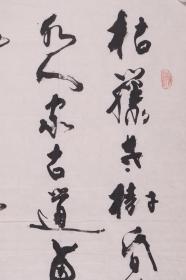 枯藤老樹昏
水人家古道西